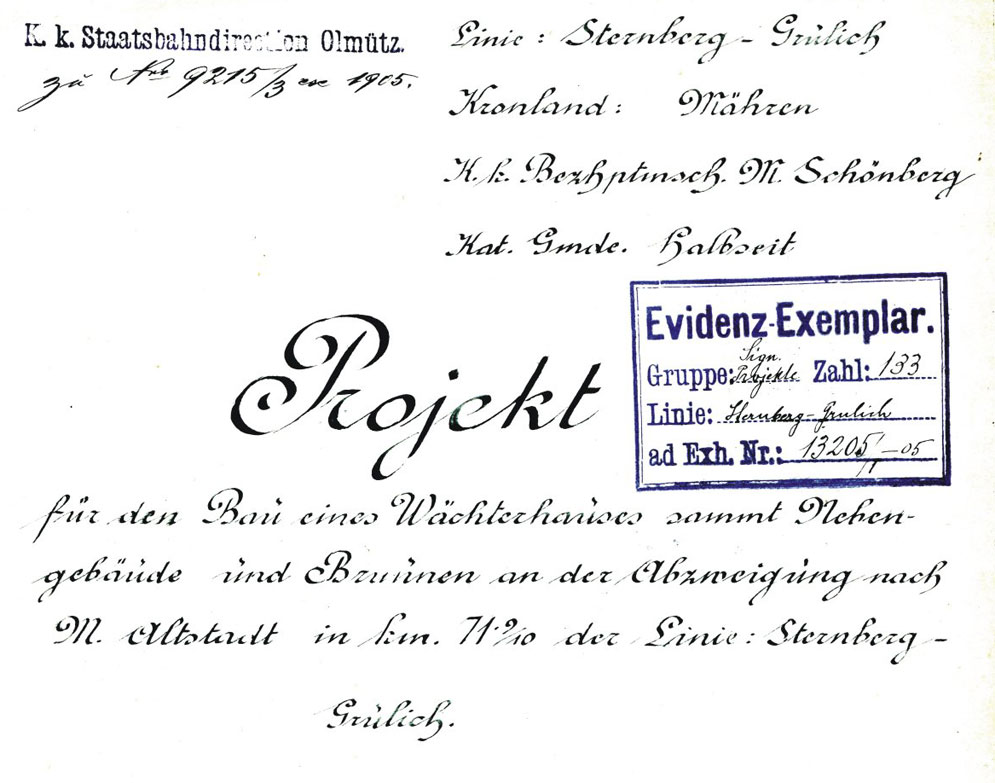 K. k. Staatsbahndirection Olmütz.
zu Nro 9215/3 ex 1905.
Linie: Sternberg - Grülich
Kronland: Mähren
K. k. Bezhptmsch. M. Schönberg
Kat. Gmde. Halbseit
Evidenz-Exemplar.
Gruppe: Sign. Projekte Zahl: 133
Linie: Sternberg-Grulich
ad Exh. Nr.: 13205/II-05
Projekt
für den Bau eines Wächterhauses sammt Neben-
gebäude und Brunnen an der Abzweigung nach
M. Altstadt in km. 71·9/10 der Linie: Sternberg-
Grülich.